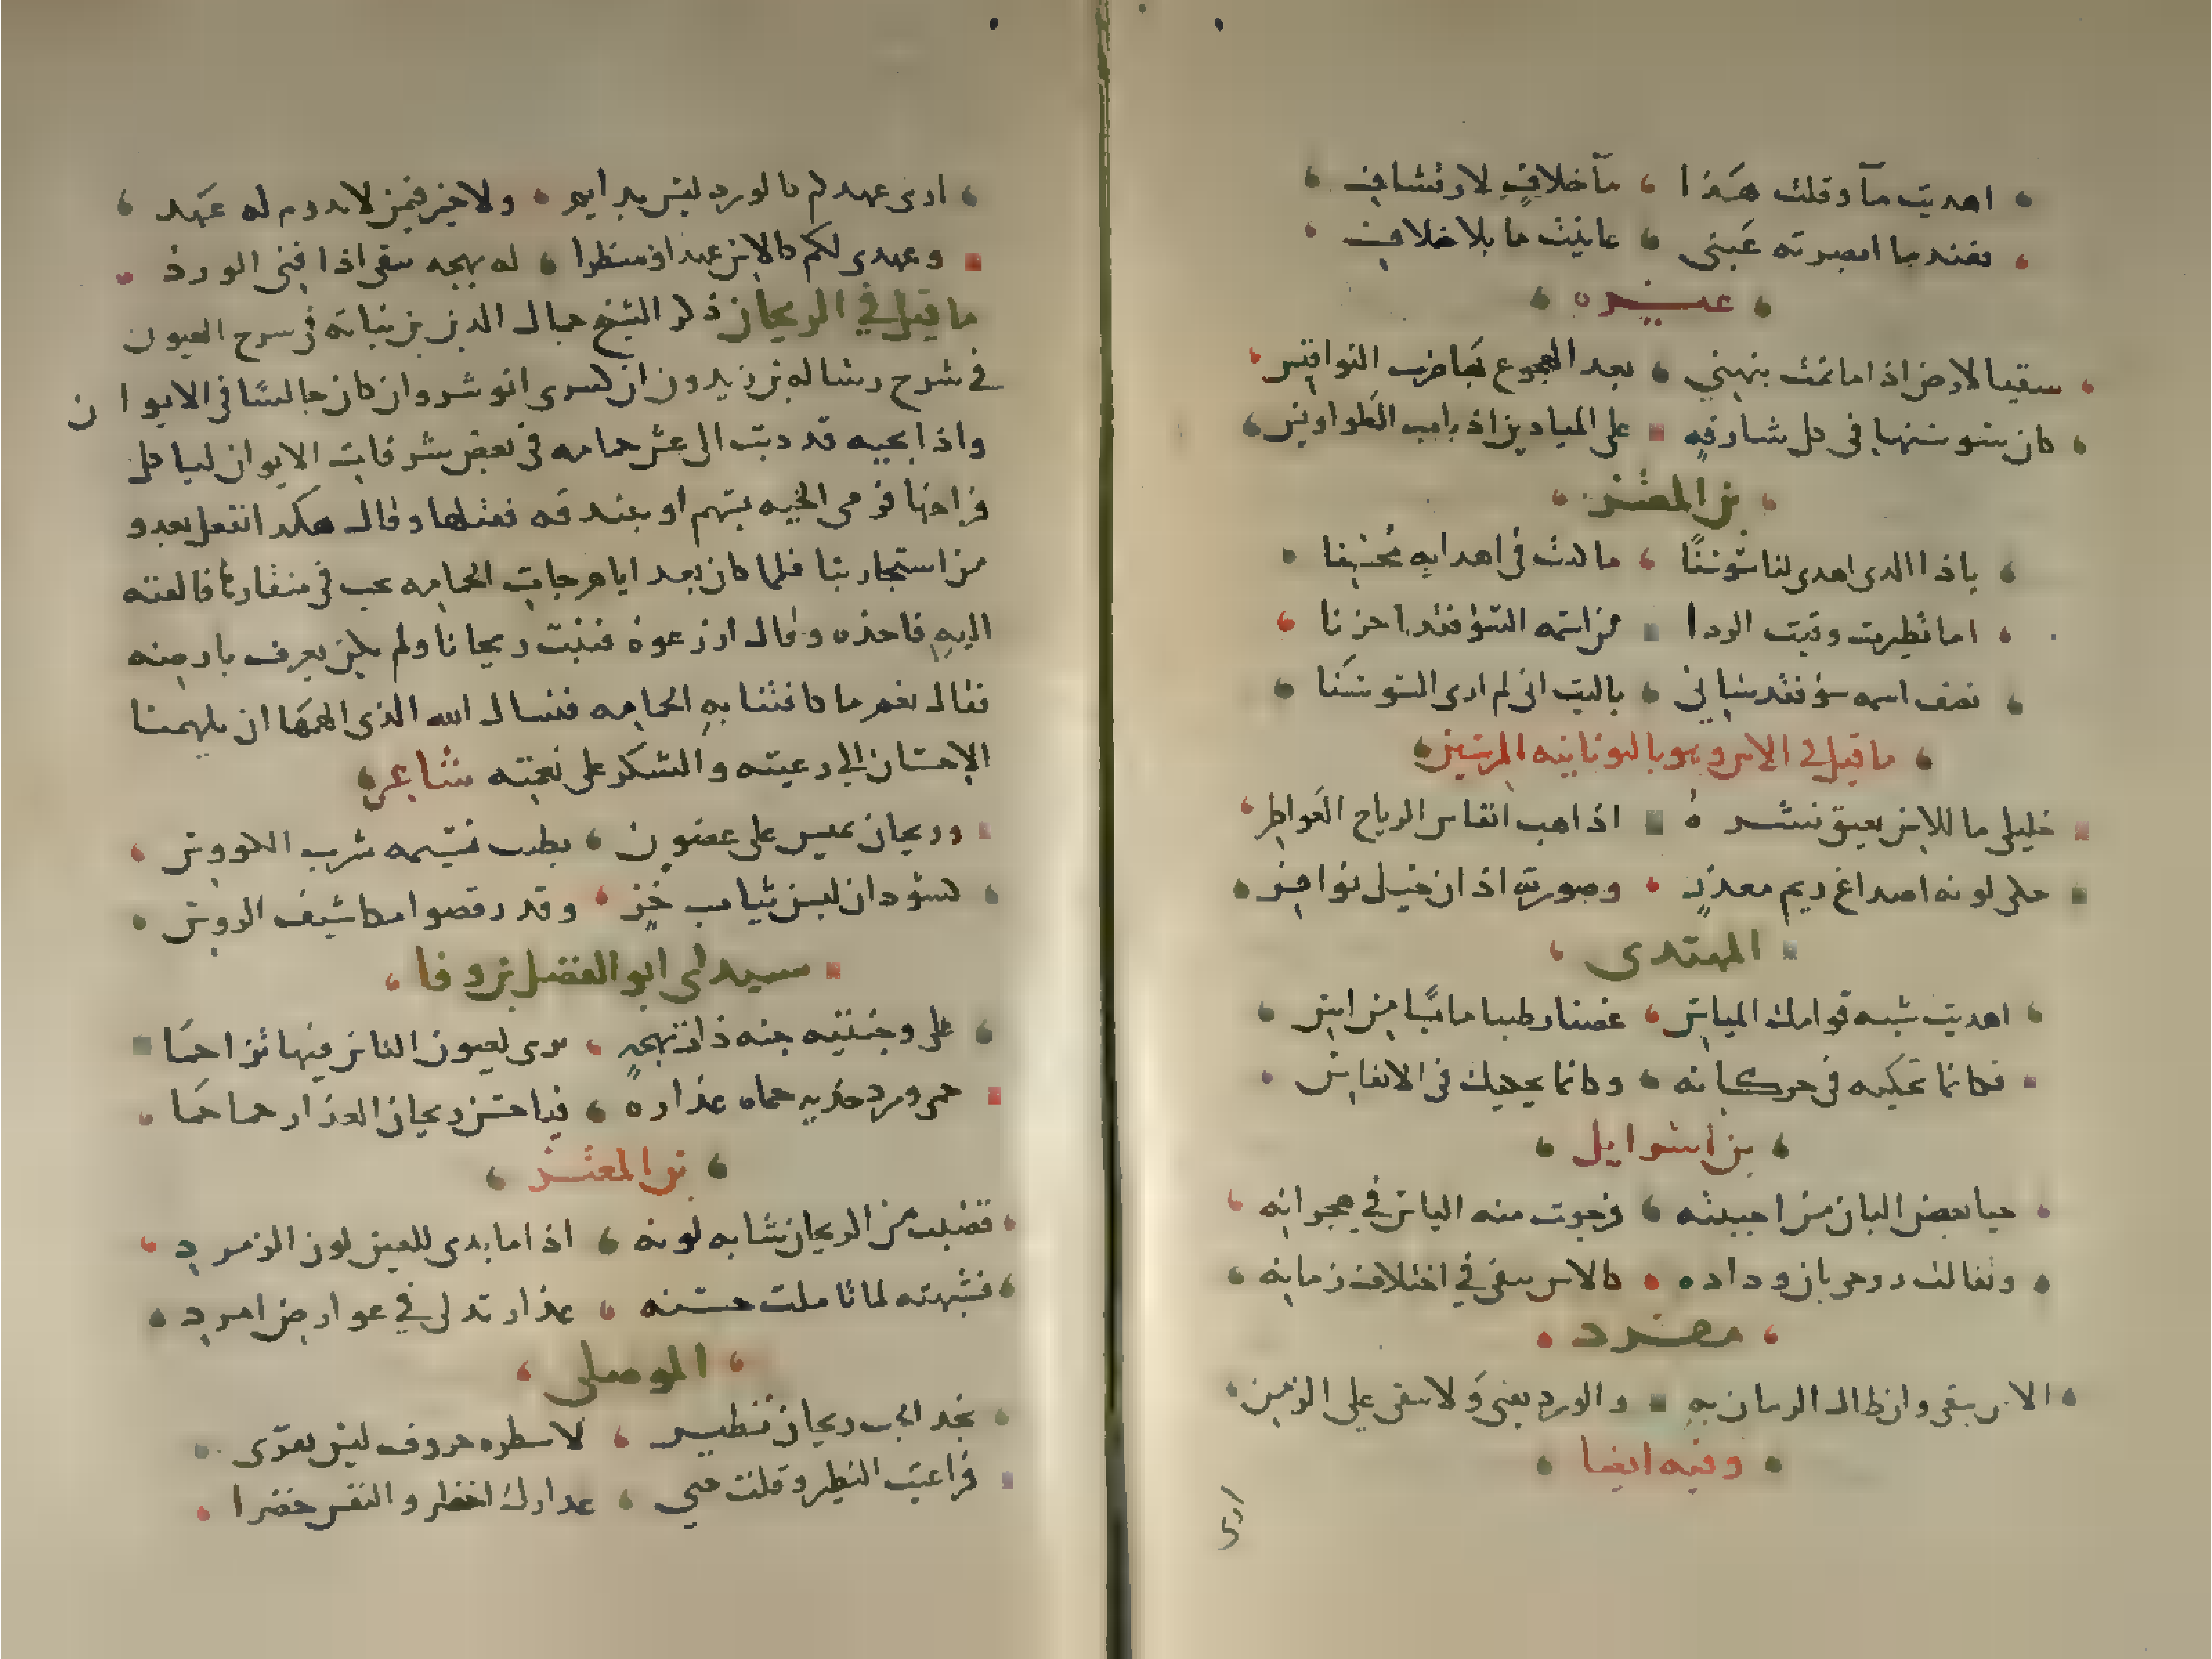 اهديت مآ وقلت هَذا مآ خلافٍ لا رتشافي
فعند ما ابصرته عَيني عاينت ما بلا خلاف
غيره
سقيا لارض اذا ما نمت ينبهني بعد الهجوع بَها ضرب النواقيس
كان سوسنها في كل شارقه على الميادين اذناب الطواويس
بن المعتز
ياذا الدى اهدى لنا سَوسنًا ما كنت في اهدايه محسنا
اما نظيرت وقيت الردا من اسمه السؤ فقد احزنا
نصف اسمه سؤ فقد ساني ياليت اني لم ارى السوسنَا
ما قيل في الاس وهو باليونانيه المرسين
خليلي ما للاس يعبق نشره اذا هب انفاس الرياح العَواطر
حكى لونه اصداغ ريم معذرٍ وصورته اذان خيل نوافر
المهتدى
اهديت شبه قوامك المياس غصنا رطيبا ما ئسًا من اس
فكانما تحكيه في حركاته وكانما يحكيك في الانفاس
بن اسرايل
حيا بعض البان من احببته فرجوت منه الياس في هجرانه
وتفالت روحي بان وداده كالاس يبقى في اختلاف زمانه
مفرد
الاس يبقى وان طال الزمان به والورد يفنى وَلا يبقى على الزمن
وفيه ايضا
ارى
ارى عهدكم كالورد ليس بدايم ولا خير فيمن لا يدوم له عَهد
وعهدى لكم كالاس عهدا ومنظرا له بهجه تبقى اذا فنى الورد
ما قيل في الريحان ذكر الشيخ جمال الدين بن نباته في سرح العيون
في شرح رساله بن زيدون ان كسرى انو شروان كان جالسًا في الايوان
واذا بحيه قد دبت الى عش حمامه في بعض شرفات الايوان لياكل
فراخها فرمى الحيه بسهم او ببندقه فقتلها وقال هكدا نفعل بعدو
من استجار بنا فلما كان بعد ايام جات الحمامه بحب في منقارها فالقته
اليه فاخذه وقال ازرعوه فنبت ريحانا ولم يكن يعرف بارضه
فقال نعم ما كافتنا به الحمامه فنسال الله الذى الهمَها ان يلهمنا
الاحسان الى رعيته والشكر على نعمته شاعر
وريحان يميس على غصون يطيب بشمه شرب الكووس
كسودان لبسن ثياب خزٍ وقد رقصوا مكاشيف الروس
سيدى ابو الفضل بن وفا
على وجنتيه جنه ذات بهجهٍ يرى لعيون الناس فيها تزاحمَا
حمى ورد خديه حماه عذاره فيا حسن ريحان العذار حماحمَا
بن المعتز
قضيب من الريحان شابه لونه اذا ما بدى للعين لون الزمرد
فشبهته لما تاملت حسنه عذار تدلى في عوارض امرد
الموصلى
بخد الحب ريحان نظير لاسطره حروف ليس تقرى
فراعيت النظير وقلت حبي عدارك اخضر والنفس خضرا